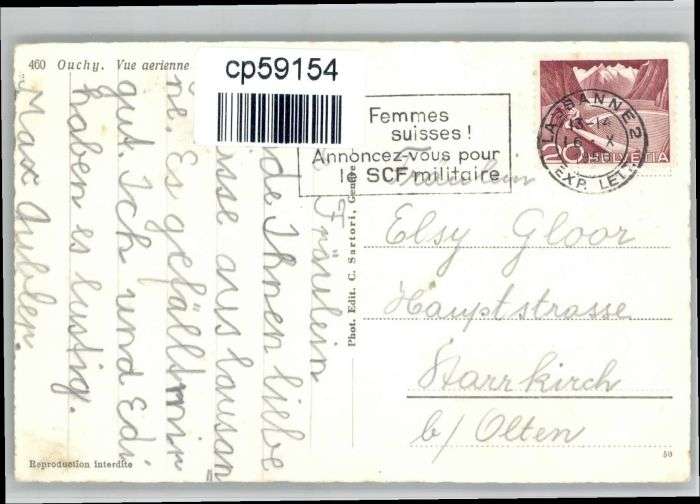 460 Ouchy. Vue aerienne
cp59154
Femmes
suisses!
Annoncez-vous pour
le SCF militaire
LAUSANNE 2
13-14
16. X
EXP. LET.
20
HELVETIA
Fräulein
Elsy Gloor
Hauptstrasse
Starrkirch
b/ Olten
Phot. Edit. C. Sartori, Genève
Fräulein
de Ihnen liebe
sse aus Lausan
ne. Es gefällt mir
gut. Ich und Edi
haben es lustig.
Max Gubler.
Reproduction interdite
50